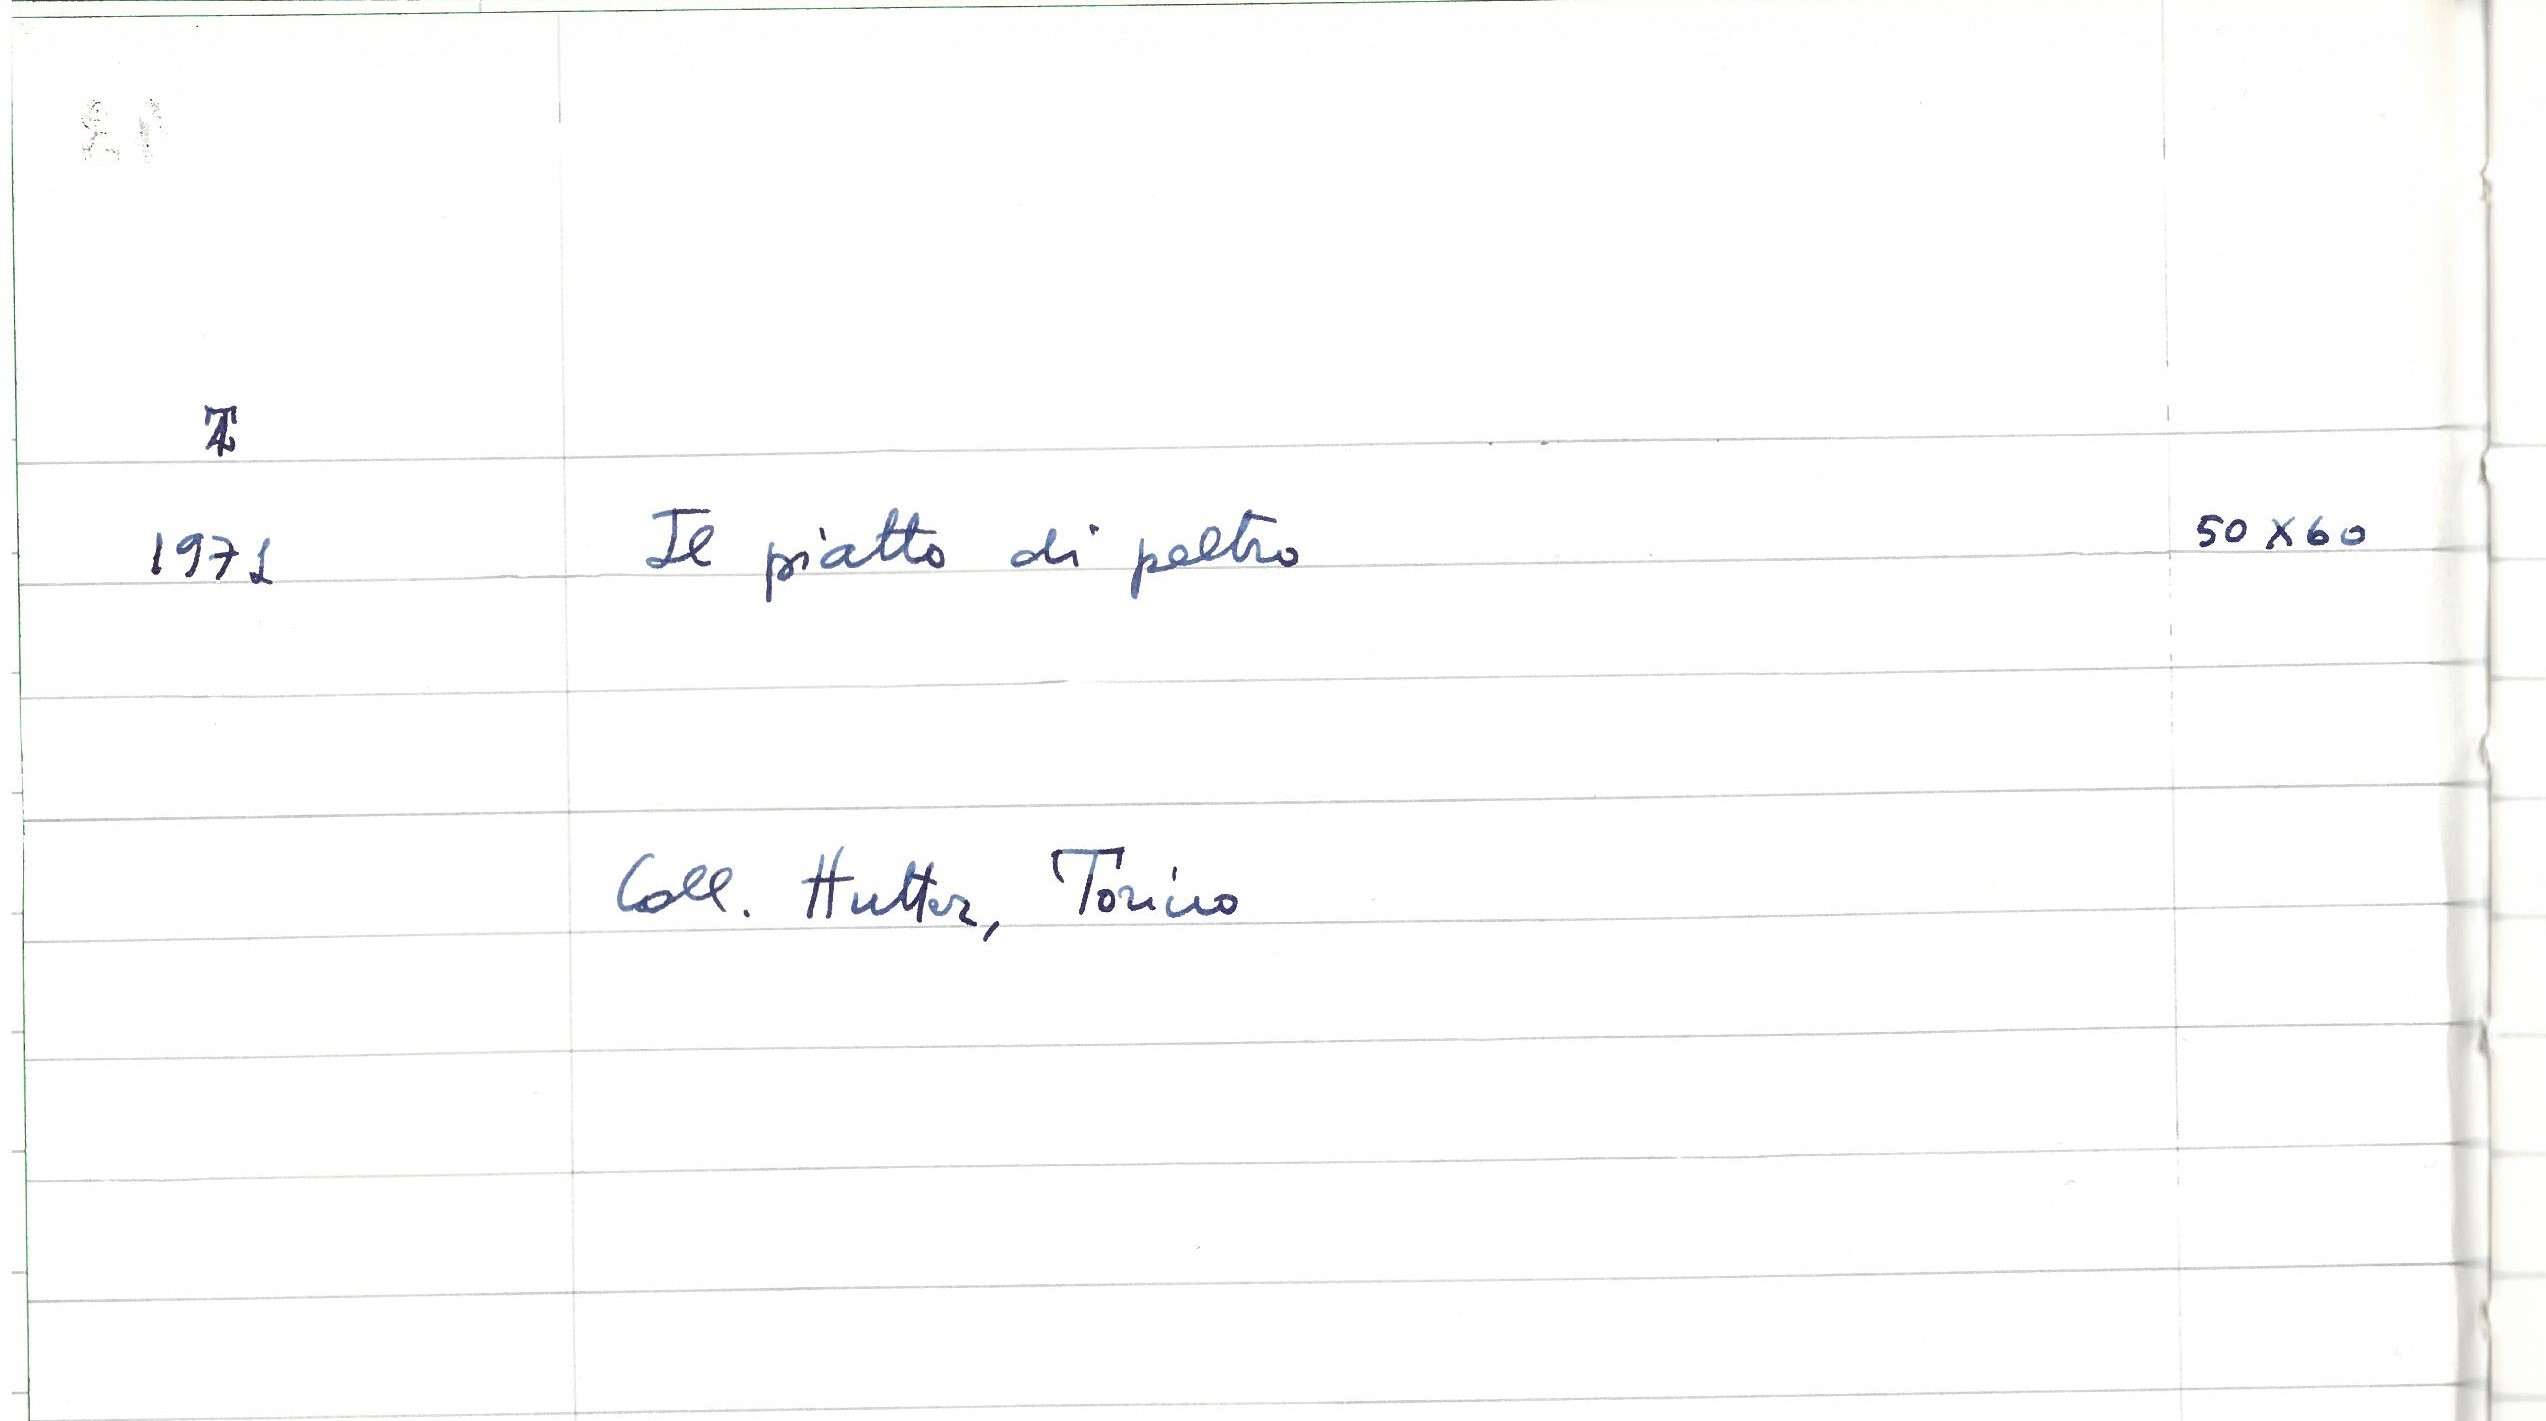 1971 Il piatto di peltro 50 x 60
Coll. Hutter, Torino